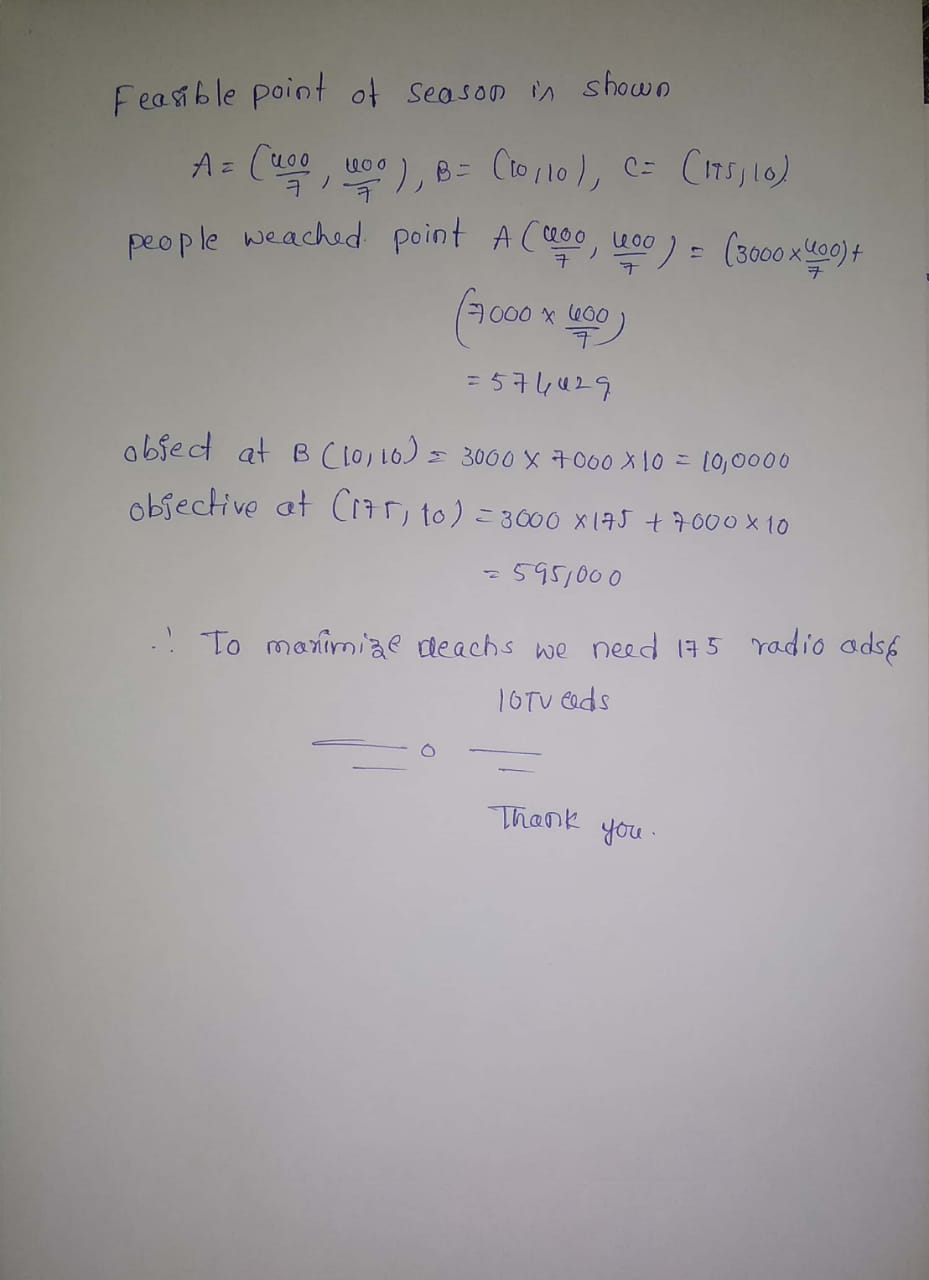 Feasible point of season in shown
A = (400/7, 400/7), B = (10,10), C = (175,10)
people weached point A (400/7, 400/7) = (3000 x 400/7) +
(7000 x 400/7)
= 574429
object at B (10,10) = 3000 x 7000 x 10 = 10,0000
objective at (175, 10) = 3000 x 175 + 7000 x 10
= 595,000
∴ To maximize reachs we need 175 radio ads &
10 TV ads
Thank you.